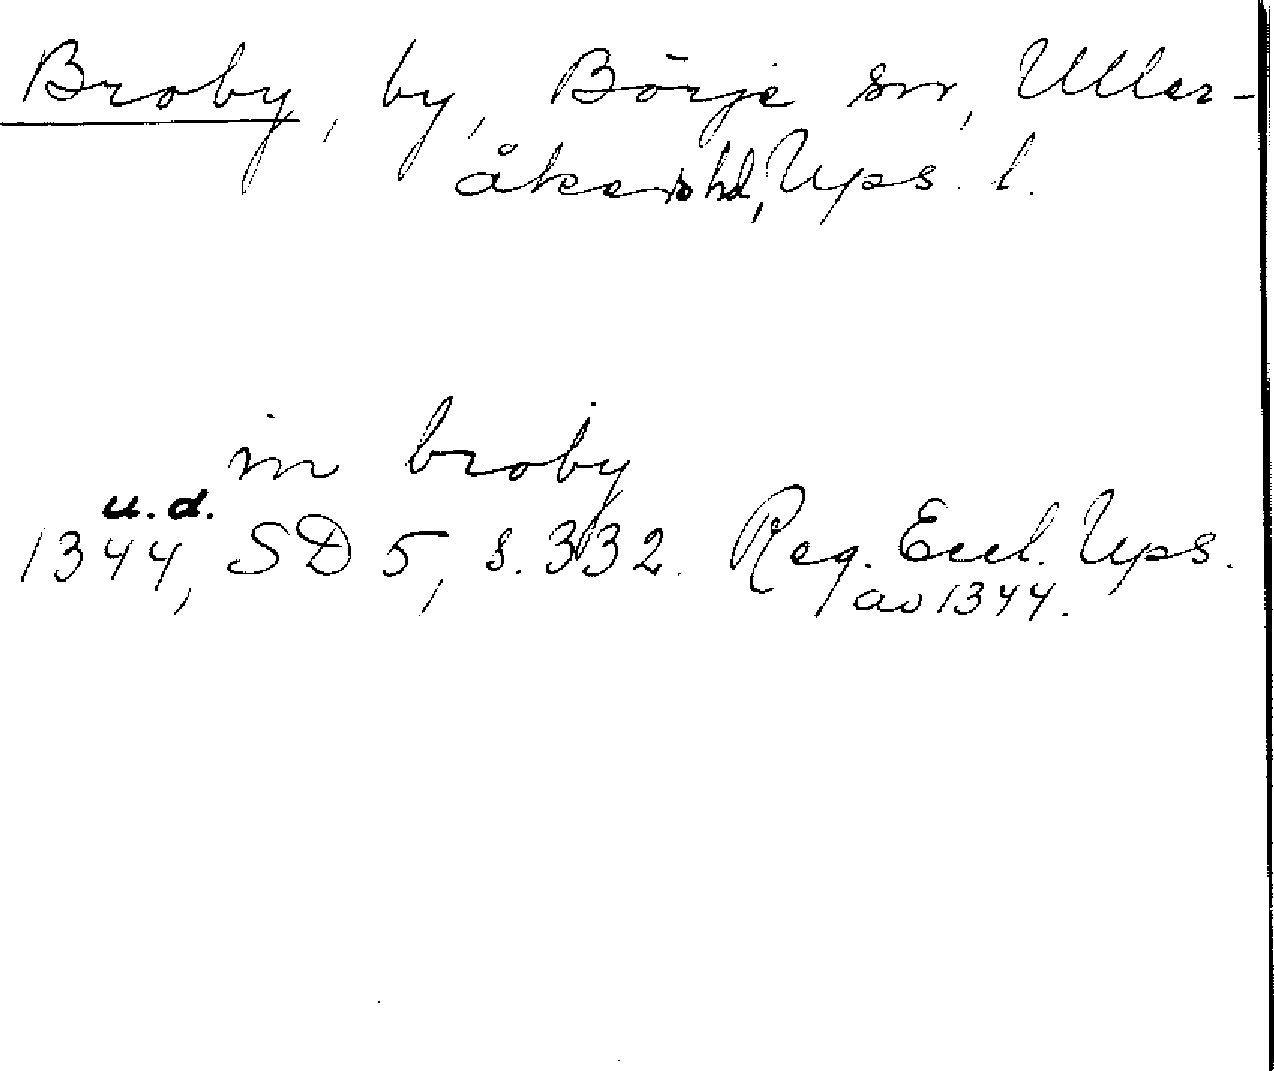 Broby, by, Börje sn, Uller-
åkers hd, Ups. l.
in broby
u.d.
1344, SD 5, s. 332. Reg. Eccl. Ups.
av 1344.